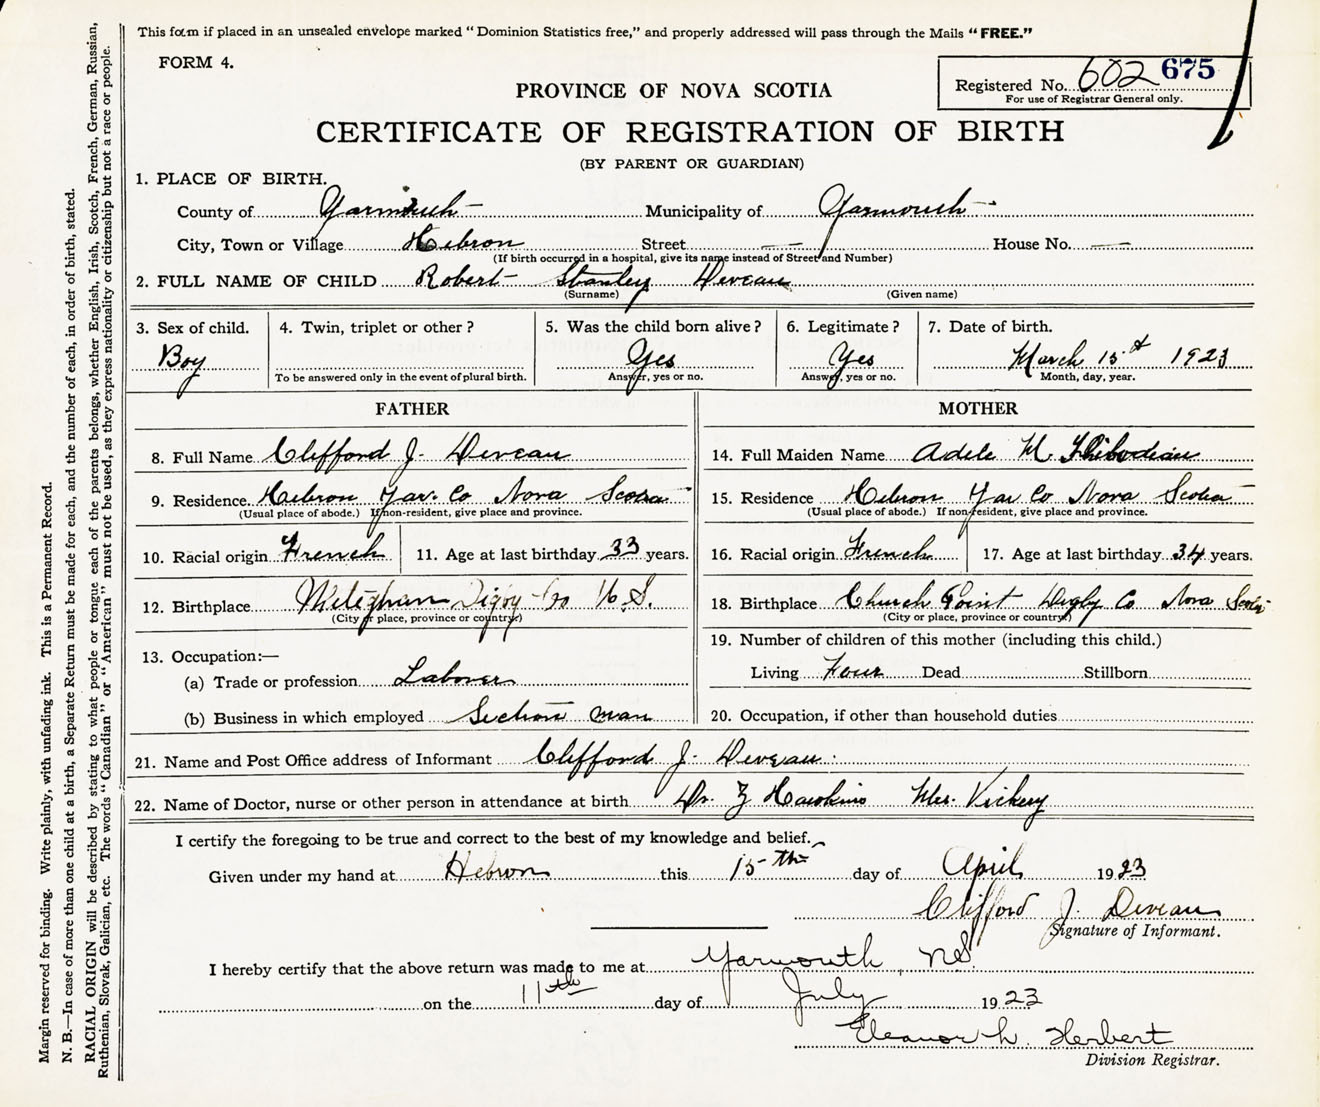 This form if placed in an unsealed envelope marked "Dominion Statistics free," and properly addressed will pass through the Mails "FREE."
FORM 4.
Registered No. 602 675
For use of Registrar General only.
PROVINCE OF NOVA SCOTIA
CERTIFICATE OF REGISTRATION OF BIRTH
(BY PARENT OR GUARDIAN)
1. PLACE OF BIRTH.
County of Yarmouth Municipality of Yarmouth
City, Town or Village Hebron Street — House No. —
(If birth occurred in a hospital, give its name instead of Street and Number)
2. FULL NAME OF CHILD Robert Stanley Deveau
(Surname) (Given name)
3. Sex of child. 4. Twin, triplet or other? 5. Was the child born alive? 6. Legitimate? 7. Date of birth.
Boy Yes Yes March 15 1923
To be answered only in the event of plural birth. Answer, yes or no. Answer, yes or no. Month, day, year.
FATHER MOTHER
8. Full Name Clifford J. Deveau 14. Full Maiden Name Adele M. Thibodeau
9. Residence. Hebron Yar. Co Nova Scotia 15. Residence Hebron Yar Co Nova Scotia
(Usual place of abode.) If non-resident, give place and province. (Usual place of abode.) If non-resident, give place and province.
10. Racial origin French 11. Age at last birthday 33 years. 16. Racial origin French 17. Age at last birthday 34 years.
12. Birthplace Meteghan Digby Co N.S. 18. Birthplace Church Point Digby Co Nova Scotia
(City or place, province or country) (City or place, province or country)
13. Occupation:— 19. Number of children of this mother (including this child.)
(a) Trade or profession Laborer Living Four Dead Stillborn
(b) Business in which employed Section man 20. Occupation, if other than household duties
21. Name and Post Office address of Informant Clifford J. Deveau
22. Name of Doctor, nurse or other person in attendance at birth Dr. Z Hawkins Mrs. Vickery
I certify the foregoing to be true and correct to the best of my knowledge and belief.
Given under my hand at Hebron this 15th day of April 1923
Clifford J. Deveau
Signature of Informant.
I hereby certify that the above return was made to me at Yarmouth, N.S.
on the 11th day of July 1923
Eleanor L. Herbert
Division Registrar.
Margin reserved for binding. Write plainly, with unfading ink. This is a Permanent Record.
N. B.—In case of more than one child at a birth, a Separate Return must be made for each, and the number of each, in order of birth, stated.
RACIAL ORIGIN will be described by stating to what people or tongue each of the parents belongs, whether English, Irish, Scotch, French, German, Russian,
Ruthenian, Slovak, Galician, etc. The words "Canadian" or "American" must not be used, as they express nationality or citizenship but not a race or people.